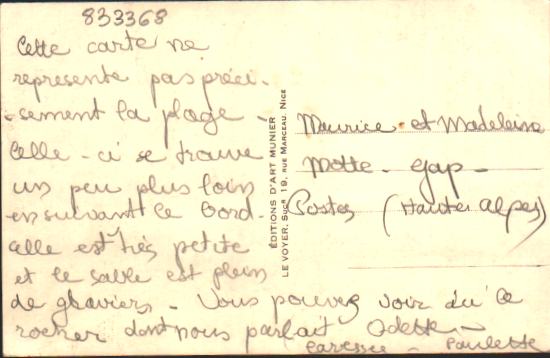 833368
Cette carte ne
represente pas préci-
-sement la plage -
Celle-ci se trouve
un peu plus loin
en suivant le bord -
elle est très petite
et le sable est plein
de graviers - Vous pouvez voir du Ce
rocher dont nous parlait Odette -
Caresses - Paulette
ÉDITIONS D'ART MUNIER
LE VOYER, Sucr 19, RUE MARCEAU, NICE
Maurice et Madeleine
Motte - Gap -
Postes (Hautes Alpes)